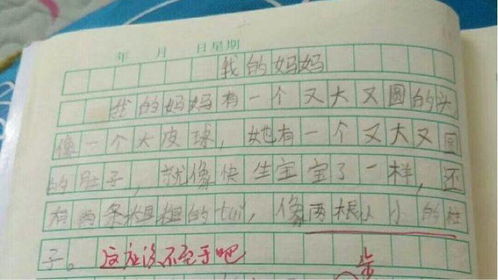 年 月 日星期
我的妈妈
我的妈妈有一个又大又圆的头
像一个大皮球，她有一个又大又圆
的肚子，就像快生宝宝了一样，还
有两条粗粗的tuǐ，像两根小小的柱
子。这应该不至于吧